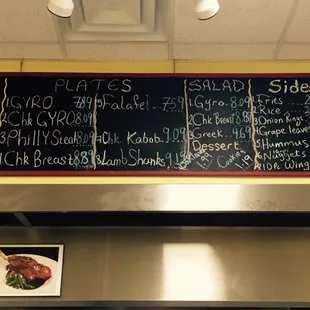 PLATES
1 GYRO 7.89
2 Chk GYRO 8.09
3 Philly Steak 8.09
4 Chk Breast 8.89
5 Falafel 7.59
6 Chk. Kabob 9.09
7 Lamb Shanks 9.19
SALAD
1 Gyro 8.09
2 Chk Breast 8.89
3 Greek 4.69
Dessert
Sides
1 Fries
2 Rice
3 Onion Rings
4 Grape leaves
5 Hummus
6 Nuggets
10 Pc Wings